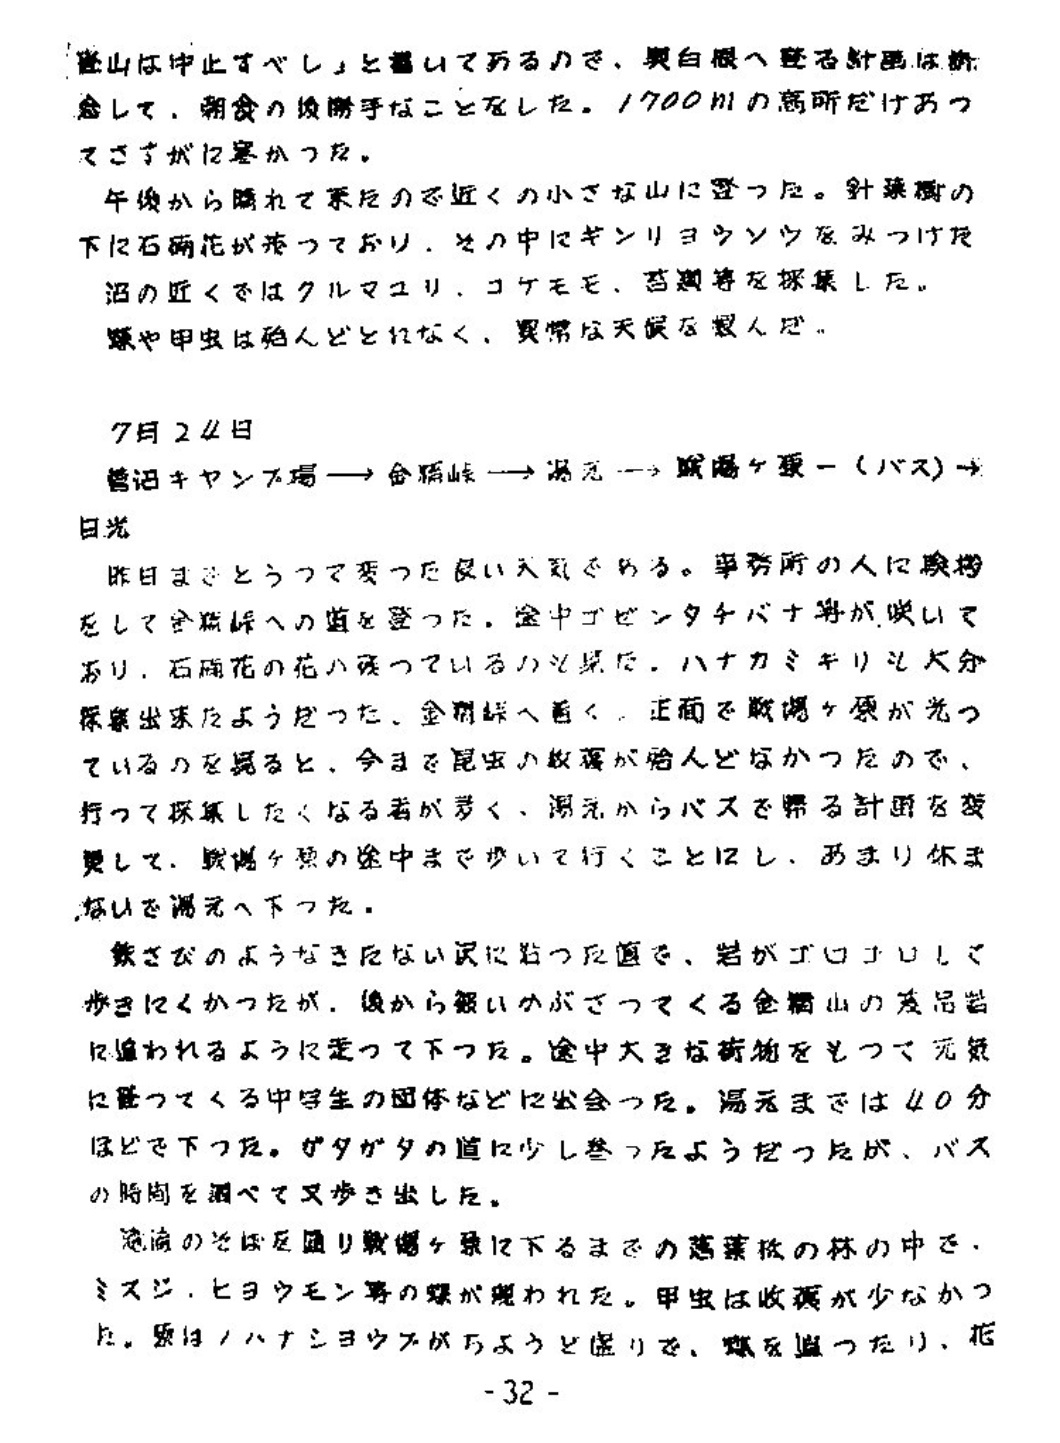 登山は中止すべし」と書いてあるので、奥白根へ登る計画は断
念して、朝食の後勝手なことをした。1700mの高所だけあっ
てさすがに寒かった。
午後から晴れて来たので近くの小さな山に登った。針葉樹の
下に石楠花が残っており、その中にギンリョウソウをみつけた
沼の近くではクルマユリ、コケモモ、苔類等を採集した。
蝶や甲虫は殆んどとれなく、異常な天候を恨んだ。
7月24日
菅沼キャンプ場→金精峠→湯元→戦場ヶ原－(バス)→
日光
昨日までとうって変った良い天気である。事務所の人に挨拶
をして金精峠への道を登った。途中ゴゼンタチバナ等が咲いて
おり、石楠花の花の残っているのも見た。ハナカミキリも大分
採集出来たようだった。金精峠へ着く。正面で戦場ヶ原が光っ
ているのを見ると、今まで昆虫の収穫が殆んどなかったので、
行って採集したくなる者が多く、湯元からバスで帰る計画を変
更して、戦場ヶ原の途中まで歩いて行くことにし、あまり休ま
ないで湯元へ下った。
鉄さびのようなきたない沢に沿った道で、岩がゴロゴロして
歩きにくかったが、後から覆いかぶさってくる金精山の岩
に追われるように走って下った。途中大きな荷物をもって元気
に登ってくる中学生の団体などに出会った。湯元までは40分
ほどで下った。ガタガタの道に少し参ったようだったが、バス
の時間を調べて又歩き出した。
湯滝のそばを通り戦場ヶ原に下るまでの落葉松の林の中で、
ミスジ、ヒョウモン等の蝶が現われた。甲虫は収穫が少なかっ
た。原はノハナショウブがちょうど盛りで、蝶を追ったり、花
-32-